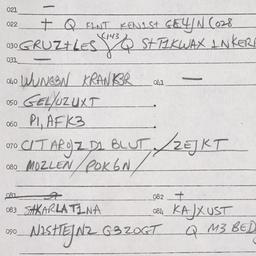 021 —
022 + Q FLNT KEN1St GE4/N (028
030 GRUZ+LES (143) Q St+T1KWAX 1NKER
031 —
040 WUNG3N KRANK3R 041 —
050 GEL/UZUXT .
060 P1, AFK3
070 C/T AROJZ D1 BLUT. / ZEJKT
080 MOZLEN / POK6N /
081 — 082 +
083 SHKARLAT1NA 084 KAJXUST
090 N1SHTEJN2 G3ZOGT Q M3 BED